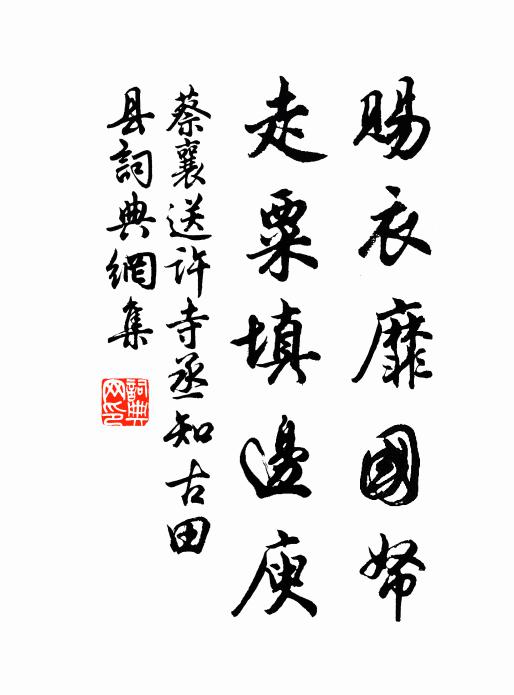 賜衣靡國帑
走粟填邊庾
蔡襄送許寺丞知古田
县詞典網集
詞典网印